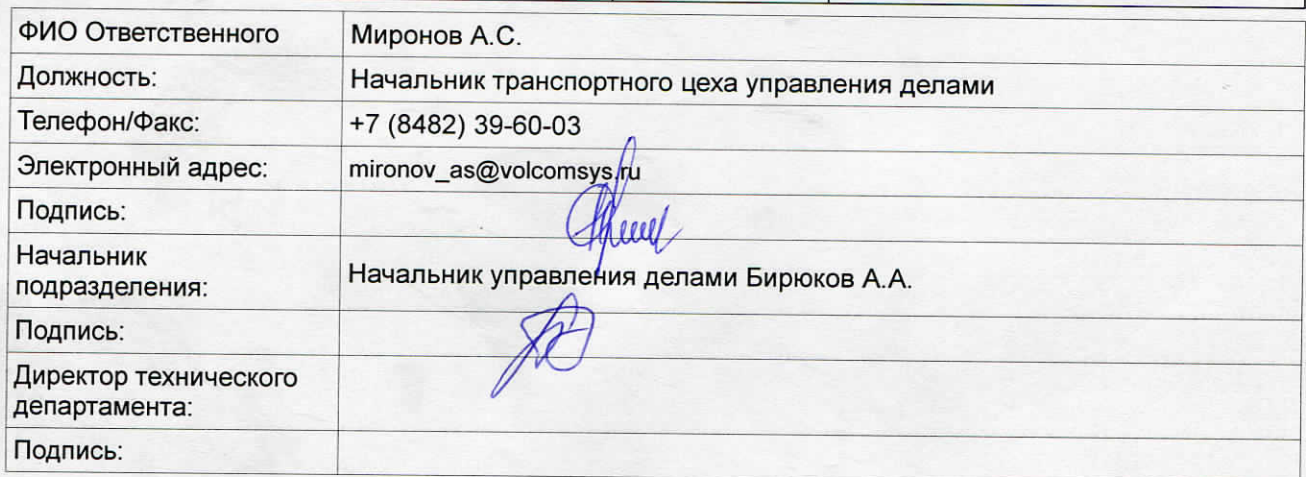 ФИО Ответственного Миронов А.С.
Должность: Начальник транспортного цеха управления делами
Телефон/Факс: +7 (8482) 39-60-03
Электронный адрес: mironov_as@volcomsys.ru
Подпись:
Начальник
подразделения: Начальник управления делами Бирюков А.А.
Подпись:
Директор технического
департамента:
Подпись: